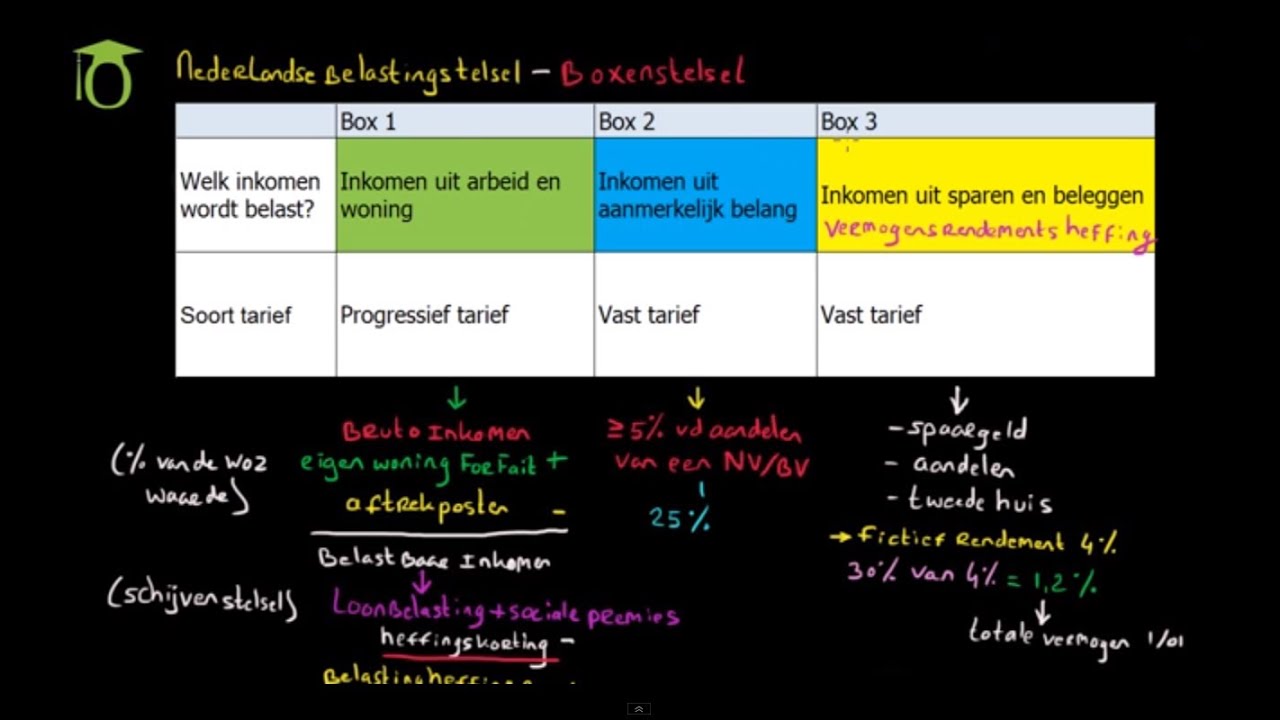 Nederlandse Belastingstelsel - Boxenstelsel
Box 1 Box 2 Box 3
Welk inkomen wordt belast?
Inkomen uit arbeid en woning
Inkomen uit aanmerkelijk belang
Inkomen uit sparen en beleggen
Vermogensrendementsheffing
Soort tarief Progressief tarief Vast tarief Vast tarief
Bruto Inkomen
(% van de WOZ waarde)
eigen woning Forfait +
aftrekposten -
Belastbare Inkomen
(schijvenstelsel)
Loonbelasting + sociale premies
heffingskorting -
≥ 5% vd aandelen
van een NV/BV
25%
- spaargeld
- aandelen
- tweede huis
→ Fictief Rendement 4%
30% van 4% = 1,2%
totale vermogen 1/01